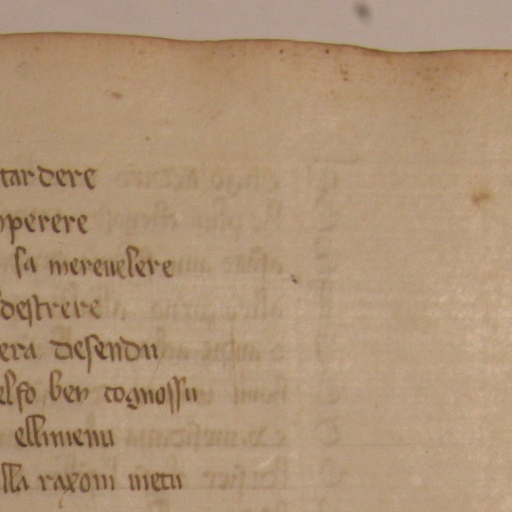 tardere
perere
sa merevelere
destrere
era desendu
elfo ben cognossu
ellimenu
lla raxom metu